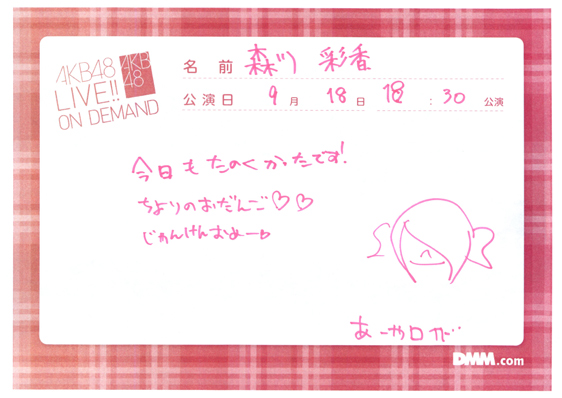 AKB48
LIVE!!
ON DEMAND
AKB
48
名前 森川 彩香
公演日 9月 18日 18:30 公演
今日もたのしかったです!
ちよりのおだんご♡♡
じゃんけんおめー♡
あーやロガ〃
DMM.com